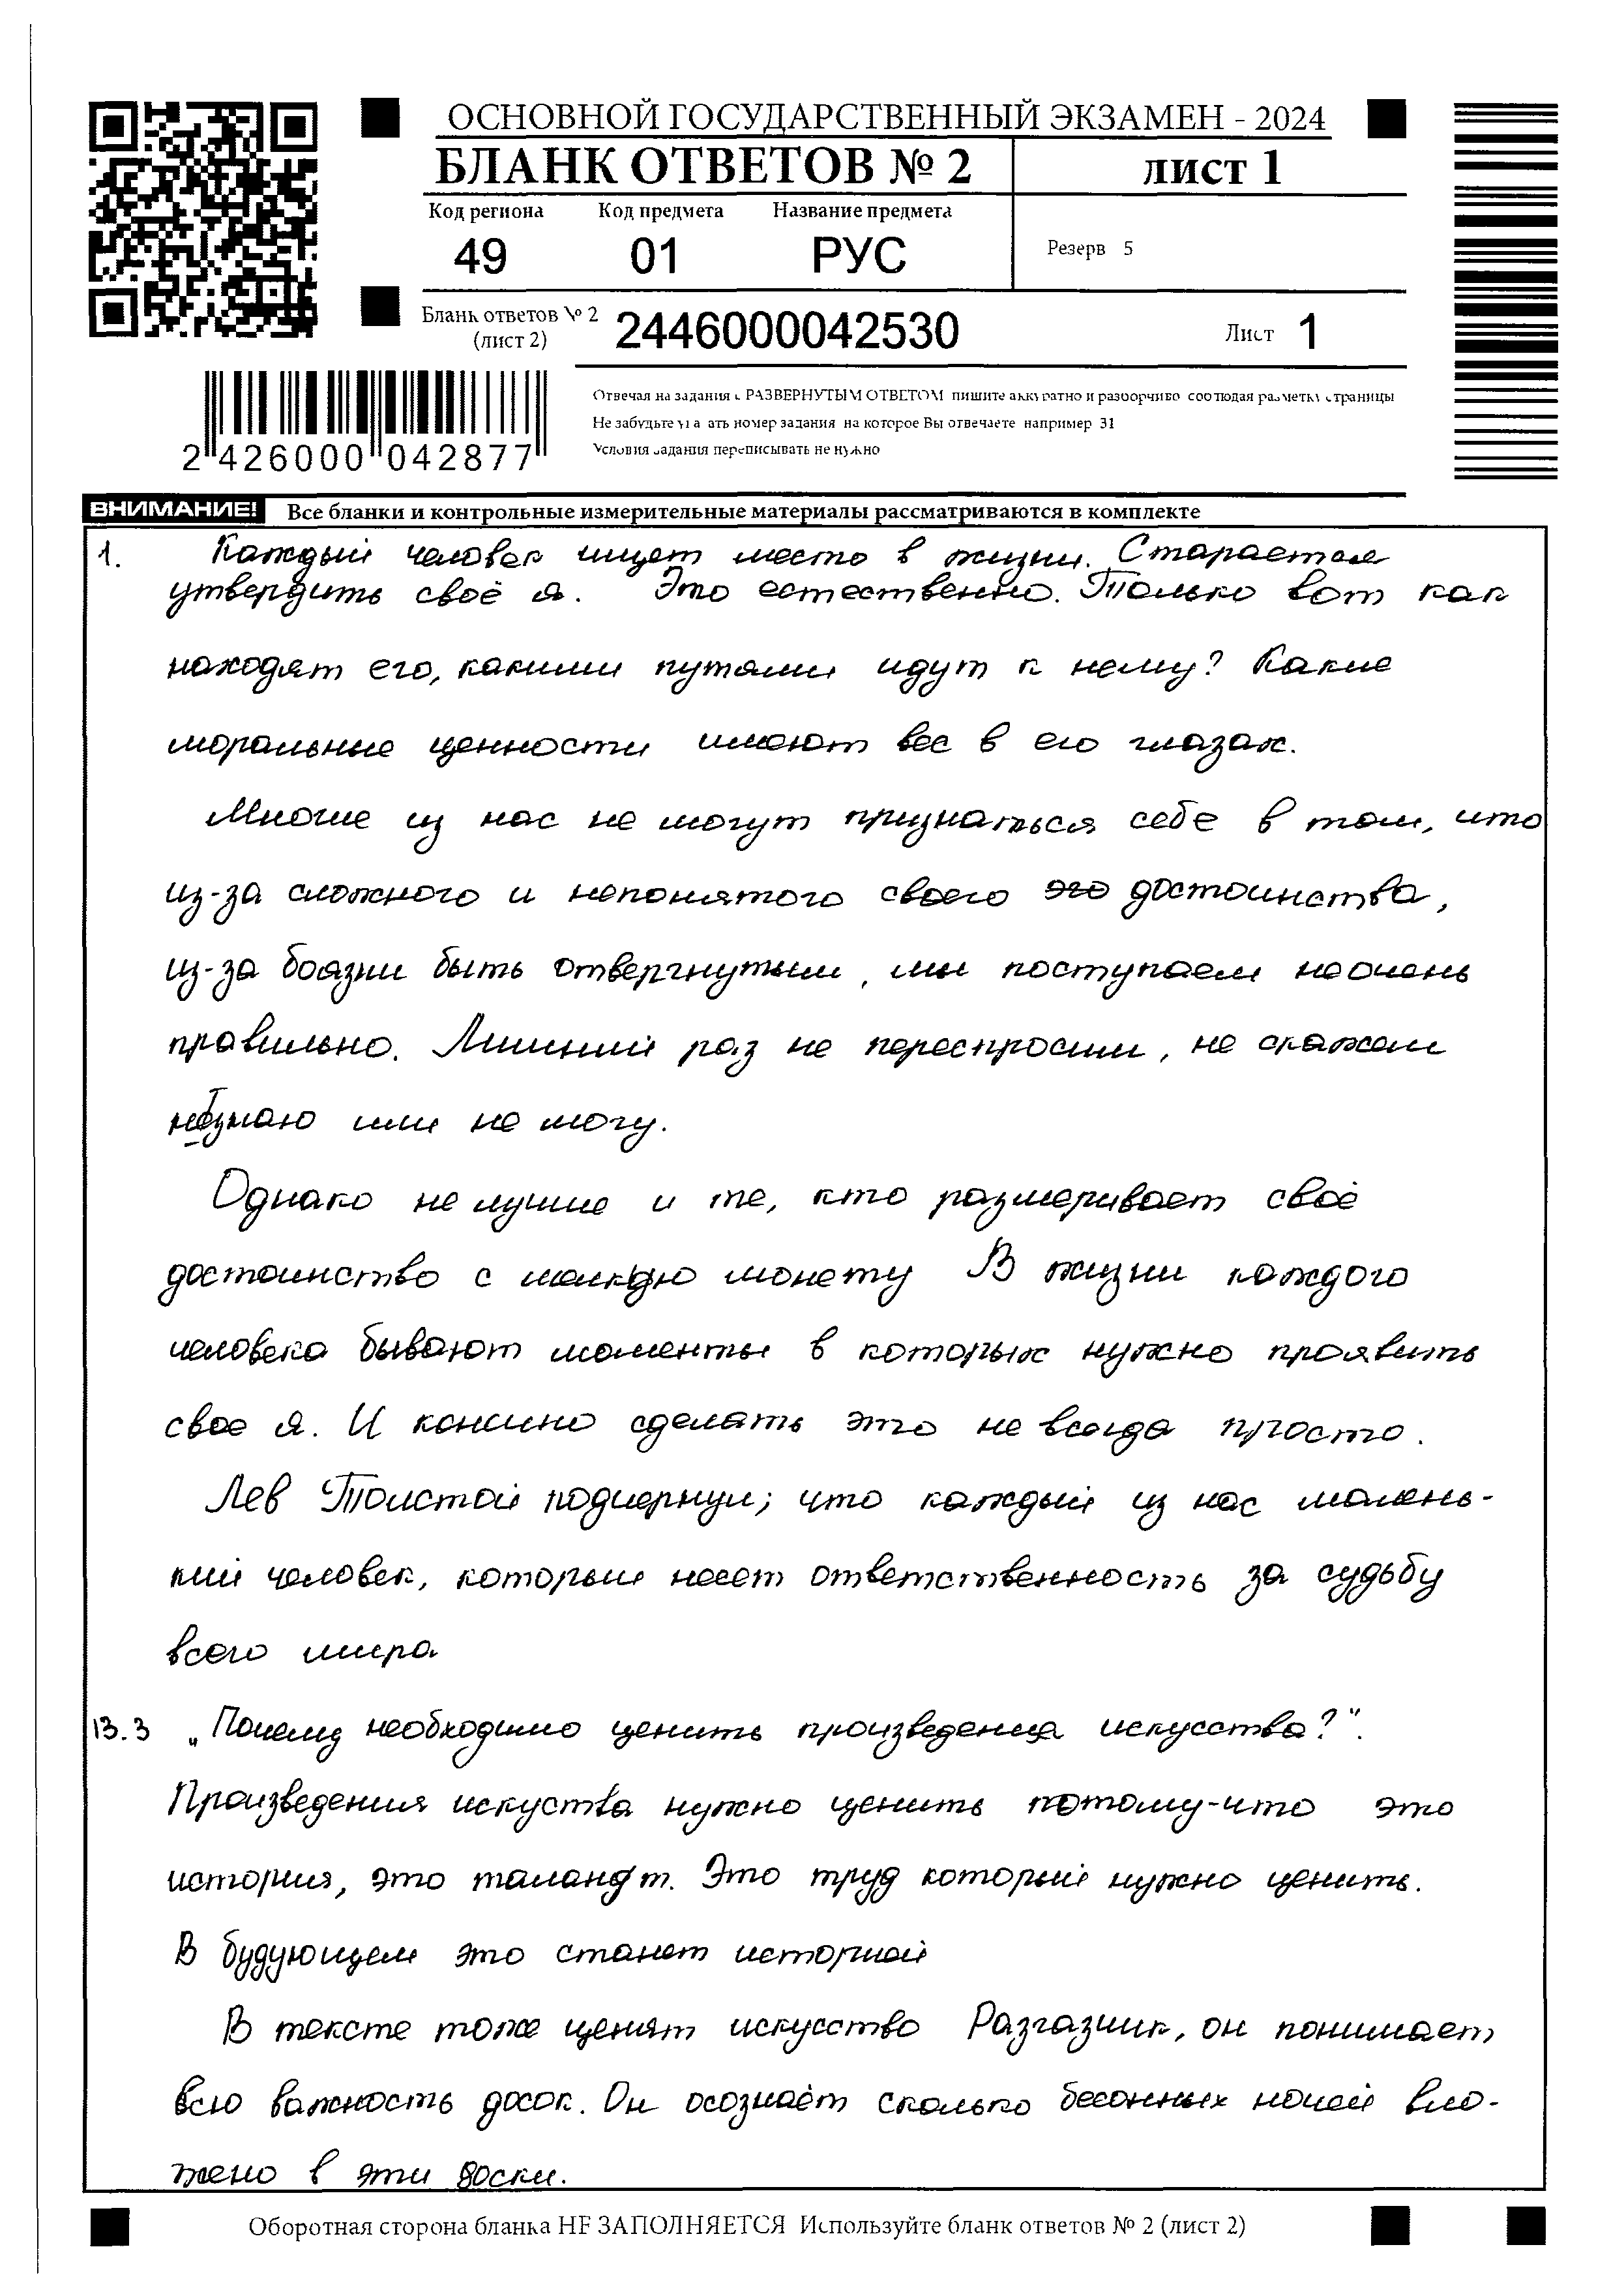 ОСНОВНОЙ ГОСУДАРСТВЕННЫЙ ЭКЗАМЕН - 2024
БЛАНК ОТВЕТОВ № 2
ЛИСТ 1
Код региона Код предмета Название предмета
49 01 РУС
Резерв 5
Бланк ответов № 2
(лист 2)
2446000042530
Лист 1
2 426000 042877
Отвечая на задания с РАЗВЕРНУТЫМ ОТВЕТОМ пишите аккуратно и разборчиво соблюдая разметку страницы
Не забудьте указать номер задания на которое Вы отвечаете например 31
Условия задания переписывать не нужно
ВНИМАНИЕ! Все бланки и контрольные измерительные материалы рассматриваются в комплекте
1. Каждый человек ищет место в жизни. Старается
утвердить своё я. Это естественно. Только вот как
находят его, какими путями идут к нему? Какие
моральные ценности имеют вес в его глазах.
Многие из нас не могут признаться себе в том, что
из-за сложного и непонятого своего эго достоинства,
из-за боязни быть отвергнутыми, мы поступаем не очень
правильно. Лишний раз не переспросим, не скажем
не знаю или не могу.
Однако не лучше и те, кто размеривает своё
достоинство с мелкую монету В жизни каждого
человека бывают моменты в которых нужно проявить
свое я. И конечно сделать это не всегда просто.
Лев Толстой подчернул; что каждый из нас малень-
кий человек, который несет ответственность за судьбу
всего мира
13.3 „Почему необходимо ценить произведения искусства?".
Произведения искуства нужно ценить потому-что это
история, это таланд т. Это труд который нужно ценить.
В будующем это станет историей
В тексте тоже ценят искусство Разгазчик, он понимает
всю важность досок. Он осознаёт сколько бесонных ночей вло-
жено в эти доски.
Оборотная сторона бланка НЕ ЗАПОЛНЯЕТСЯ Используйте бланк ответов № 2 (лист 2)